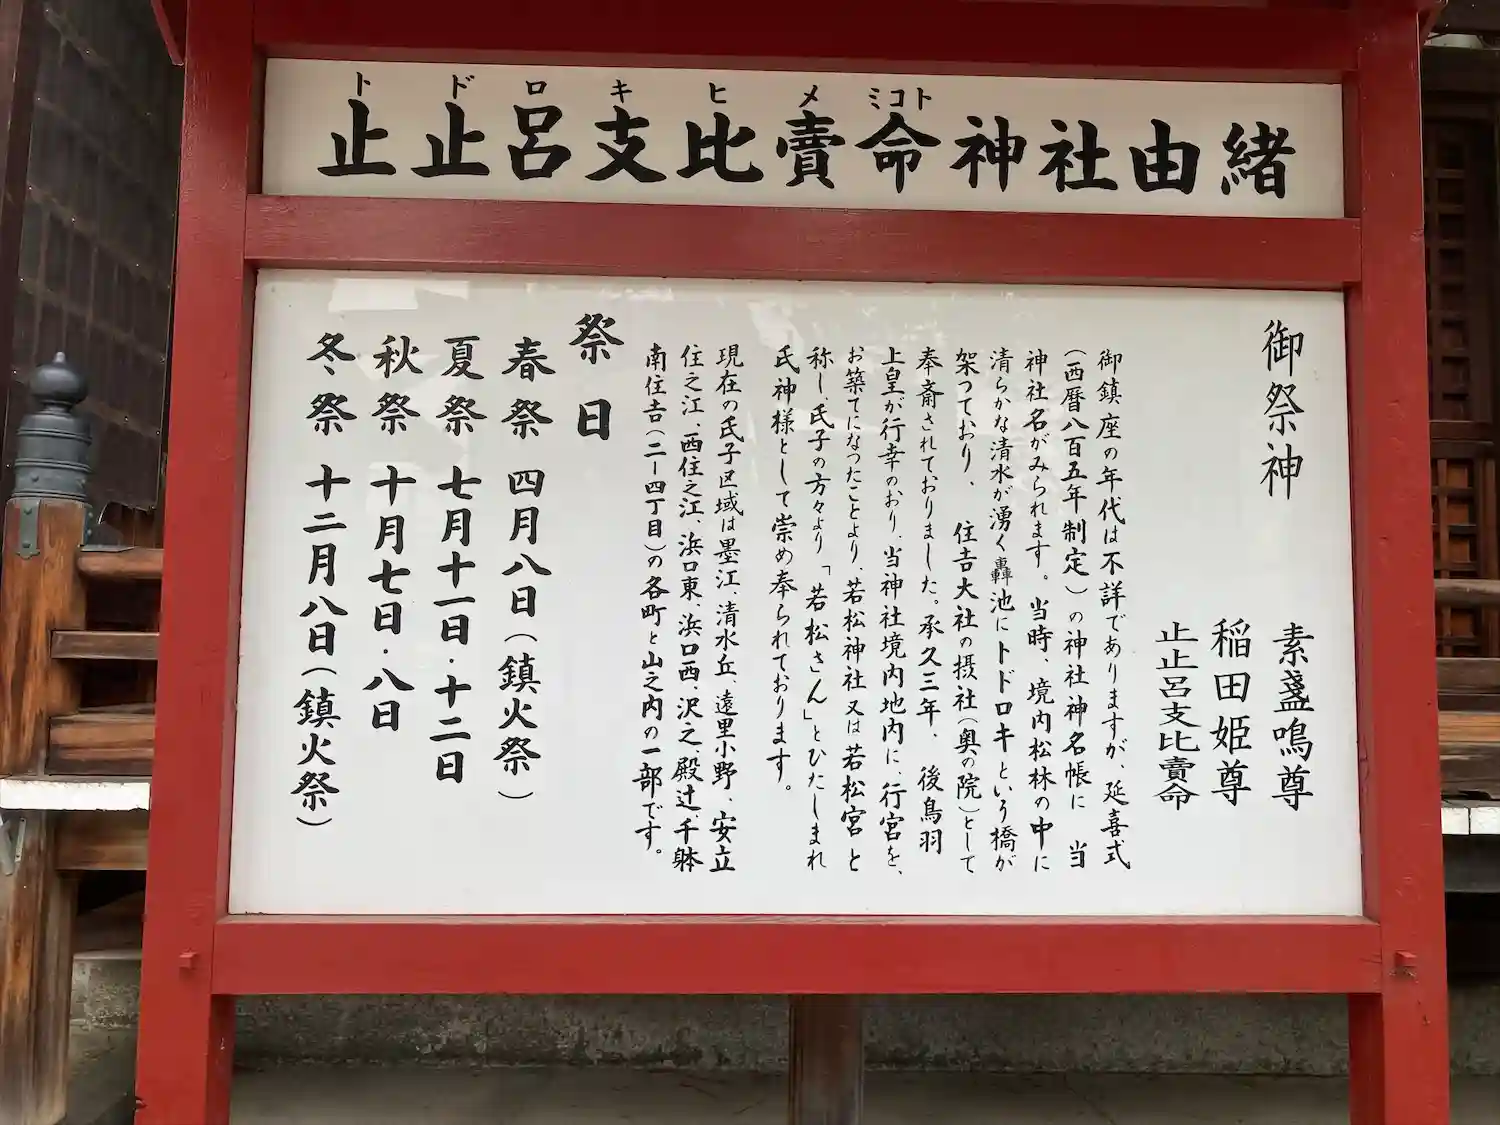 ト ド ロ キ ヒ メ ミコト
止止呂支比賣命神社由緒
御祭神
素盞嗚尊
稲田姫尊
止止呂支比賣命
御鎮座の年代は不詳でありますが、延喜式
(西暦八百五年制定)の神社神名帳に 当
神社名がみられます。当時、境内松林の中に
清らかな清水が湧く轟池にトドロキという橋が
架つており、 住吉大社の摂社(奥の院)として
奉斎されておりました。承久三年、 後鳥羽
上皇が行幸のおり、当神社境内地内に、行宮を、
お築てになつたことより、若松神社又は若松宮と
称し、氏子の方々より「若松さん」とひたしまれ
氏神様として崇め奉られております。
現在の氏子区域は墨江、清水丘、遠里小野、安立
住之江、西住之江、浜口東、浜口西、沢之、殿辻、千躰
南住吉(二ー四丁目)の各町と山之内の一部です。
祭日
春祭 四月八日(鎮火祭)
夏祭 七月十一日・十二日
秋祭 十月七日・八日
冬祭 十二月八日(鎮火祭)